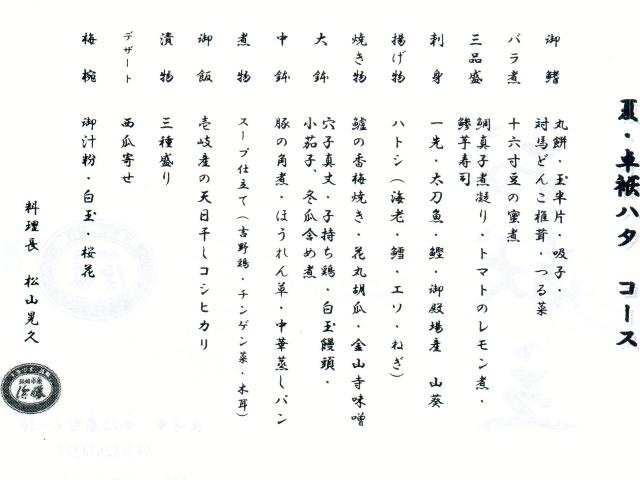 夏・卓袱ハタ コース
御鰭 丸餅・玉半片・吸子・
対馬どんこ椎茸・つる菜
バラ煮 十六寸豆の蜜煮
三品盛 鯛真子煮凝り・トマトのレモン煮・
鯵芋寿司
刺身 一先・太刀魚・鰹・御殿場産 山葵
揚げ物 ハトシ(海老・鱈・エソ・ねぎ)
焼き物 鱸の香梅焼き・花丸胡瓜・金山寺味噌
大鉢 穴子真丈・子持ち鶏・白玉饅頭・
小茄子、冬瓜含め煮
中鉢 豚の角煮・ほうれん草・中華蒸しパン
煮物 スープ仕立て(吉野鶏・チンゲン菜・木耳)
御飯 壱岐産の天日干しコシヒカリ
漬物 三種盛り
デザート 西瓜寄せ
梅椀 御汁粉・白玉・桜花
料理長 松山晃久